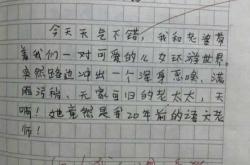 今天天气不错，我和老婆带
着我们一对可爱的儿女环游世界
突然路边冲出一个浑身恶臭，满
脸污秽，无家可归的老太太，天
啊！她竟然是我20年前的语文老
师！